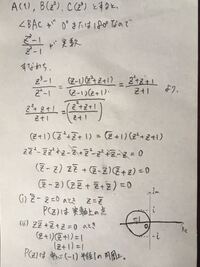 A(1), B(z²), C(z³) とすると、
∠BAC が 0° または 180° なので
(z³-1)/(z²-1) が 実数
すなわち、
(z³-1)/(z²-1) = (z-1)(z²+z+1)/(z-1)(z+1) = (z²+z+1)/(z+1) より、
(z²+z+1)/(z+1) = \overline{((z²+z+1)/(z+1))}
(z+1)(z̄²+z̄+1) = (z̄+1)(z²+z+1)
(z̄-z)(zz̄+z̄+z) = 0
(i) z̄-z=0 のとき z=z̄
P(z)は実軸上の点
(ii) zz̄+z̄+z=0 のとき
(z+1)(z̄+1)=1
|z+1|=1
P(z)は 中心(-1) 半径1の円周上。
Im
i
-1
0
-i
Re